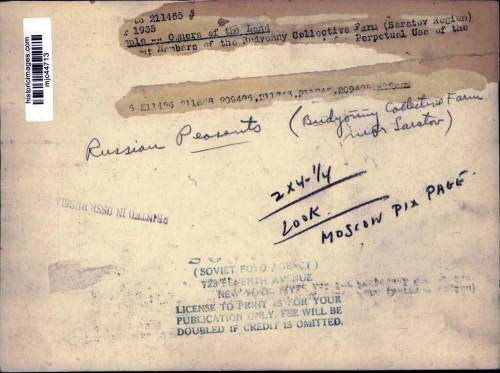 to 211485
1935
Owners of the Land
Members of the Budyonny Collective Farm (Saratov Region)
Perpetual Use of the
historicimages.com
mjo44713
211486
Russian Peasants
(Budyonny Collective Farm
near Saratov)
2 x 4-1/4
LOOK
MOSCOW PIX PAGE
PRINTED IN USSR RUSSIA
(SOVIET FOTO AGENCY)
723 SEVENTH AVENUE
NEW YORK
LICENSE TO PRINT IS FOR YOUR
PUBLICATION ONLY. FEE WILL BE
DOUBLED IF CREDIT IS OMITTED.